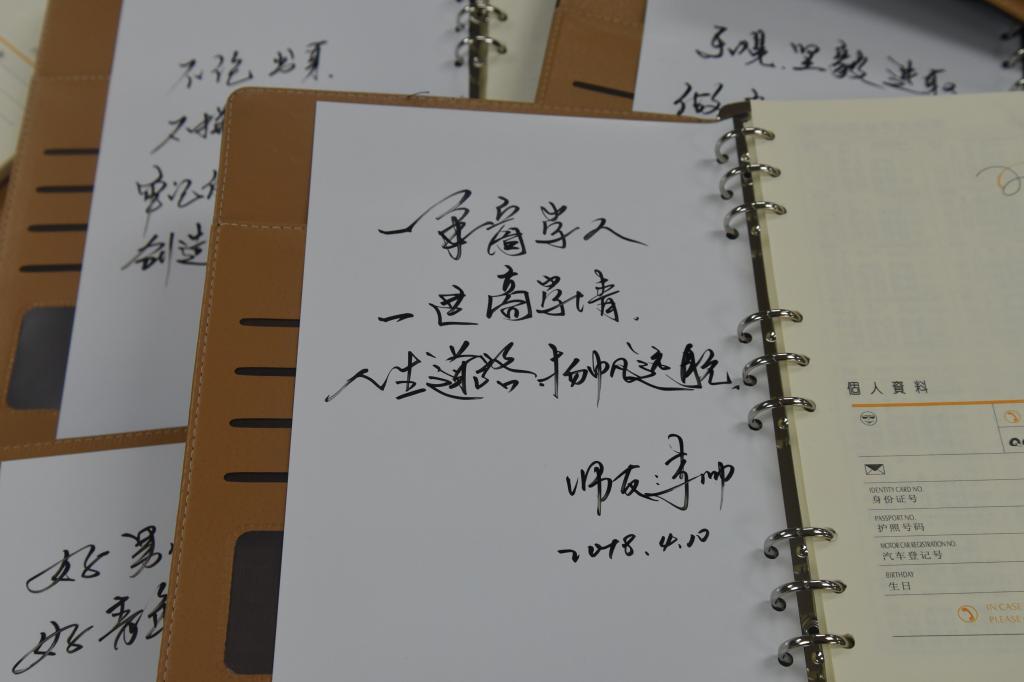 牢记
创造
乐观.坚毅 进取
做
一年商学人
一世商学情.
人生道路.扬帆远航.
师友:李帅
2018.4.10
好男
好青
個人資料
IDENTITY CARD NO.
身份证号
PASSPORT NO.
护照号码
MOTOR CAR REGISTRATION NO.
汽车登记号
BIRTHDAY
生日
IN CASE
PLEASE